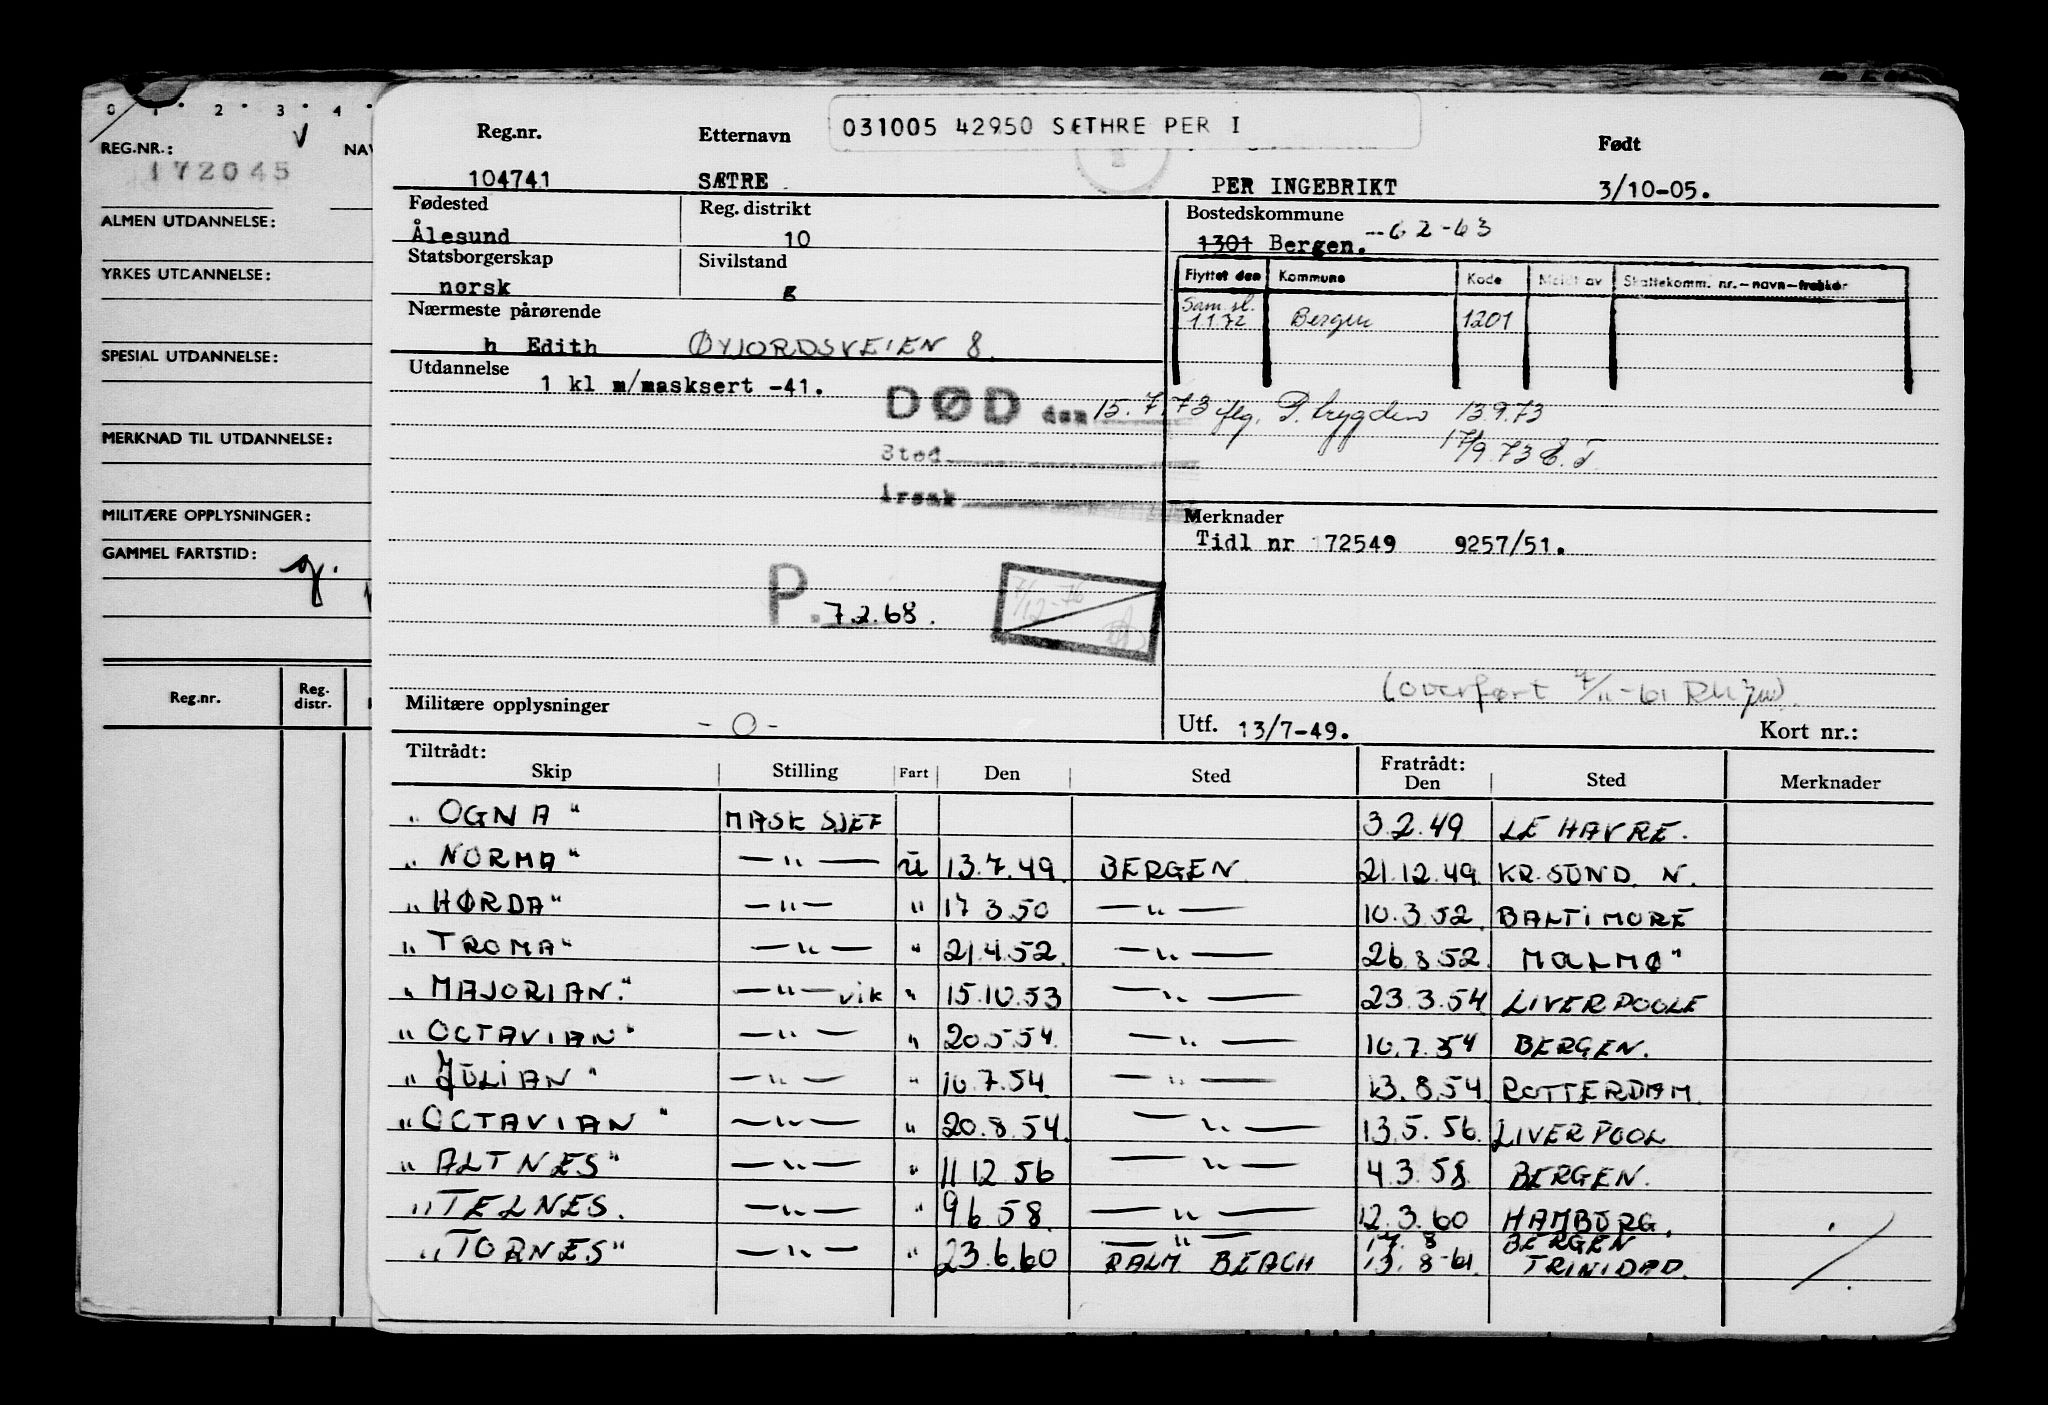 0 1 2 3 4
REG.NR.:
NAV
172045
ALMEN UTDANNELSE:
YRKES UTDANNELSE:
SPESIAL UTDANNELSE:
MERKNAD TIL UTDANNELSE:
MILITÆRE OPPLYSNINGER:
GAMMEL FARTSTID:
Reg.nr. Reg. distr.
031005 42950 SÆTHRE PER I
Reg.nr. Etternavn Født
104741 SÆTRE PER INGEBRIKT 3/10-05.
Fødested Reg. distrikt
Ålesund 10
Statsborgerskap Sivilstand
norsk g
Nærmeste pårørende
h Edith ØYJORDSVEIEN 8.
Utdannelse
1 kl m/masksert -41.
Bostedskommune
1301 Bergen. -62-63
Flyttet den Kommune Kode Meldt av Skattekomm. nr.-navn-trekker
Sam.sl. 1.1.72 Bergen 1201
DØD den 15.7.73 flg. P. trygden 13.9.73
17/9.73 E.T.
Sted
Årsak
Merknader
Tidl nr 172549 9257/51.
P. 7.2.68.
7/12-76
(overført 7/11-61
Militære opplysninger
- 0 -
Utf. 13/7-49. Kort nr.:
Tiltrådt: Fratrådt:
Skip Stilling Fart Den Sted Den Sted Merknader
„ OGNA " MASK SJEF 3.2.49 LE HAVRE.
„ NORMA " — " — U 13.7.49. BERGEN 21.12.49. KR.SUND. N.
„ HØRDA " — " — " 17 3.50 — " — 10.3.52. BALTIMORE
„ TROMA " — " — " 21.4.52. — " — 26.8.52. MALMØ "
„ MAJORIAN. " — " — vik " 15.10.53 — " — 23.3.54 LIVERPOOLE
„ OCTAVIAN " — " — " 20.5.54. — " — 10.7.54 BERGEN.
„ JULIAN " — " — " 10.7.54. — " — 13.8.54. ROTTERDAM.
„ OCTAVIAN " — " — " 20.8.54. — " — 13.5.56. LIVERPOOL
„ ALTNES " — " — " 11 12 56 — " — 4.3.58. BERGEN.
„ TELNES. — " — " 9 6.58. — " — 12.3.60 HAMBURG.
„ TORNES " — " — " 23.6.60 — " — 17. 8 BERGEN
PALM BEACH 13. 8-61. TRINIDAD.